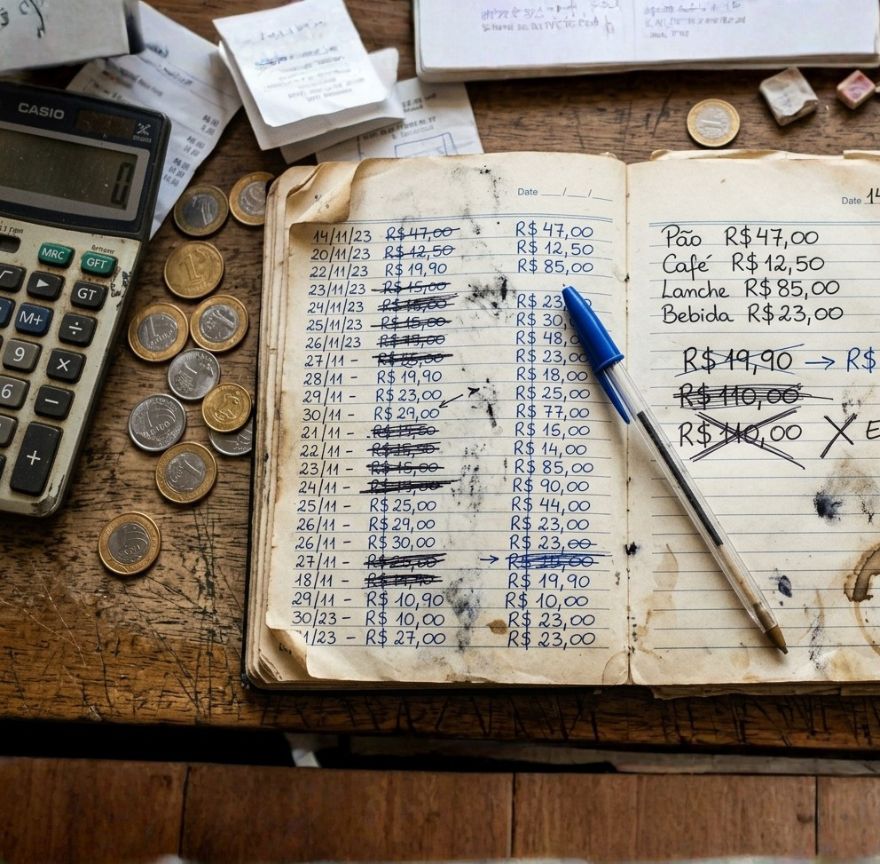 CASIO
MRC
GFT
GT
M+
÷
9
×
6
−
+
Date __/__/__
14/11/23 R$ 47,00 R$ 47,00
20/11/23 R$ 12,50 R$ 12,50
22/11/23 R$ 19,90 R$ 85,00
23/11/23 R$ 15,00
24/11/23 R$ 23
25/11/23 R$ 15,00 R$ 30,
26/11/23 R$ 48,
27/11 - R$ 23,00
28/11 - R$ 19,90 R$ 18,00
29/11 - R$ 23,00 R$ 25,00
30/11 - R$ 29,00 R$ 77,00
21/11 - R$ 16,00
22/11 - R$ 14,00
23/11 - R$ 15,00 R$ 85,00
24/11 - R$ 90,00
25/11 - R$ 25,00 R$ 44,00
26/11 - R$ 29,00 R$ 23,00
26/11 - R$ 30,00 R$ 23,00
27/11 - R$ 25,00 →
18/11 - R$ 19,90
29/11 - R$ 10,90 R$ 10,00
30/23 - R$ 10,00 R$ 23,00
1/23 - R$ 27,00 R$ 23,00
Date 14
Pão R$ 47,00
Café R$ 12,50
Lanche R$ 85,00
Bebida R$ 23,00
R$ 19,90 → R$
R$ 110,00
R$ 110,00 X E